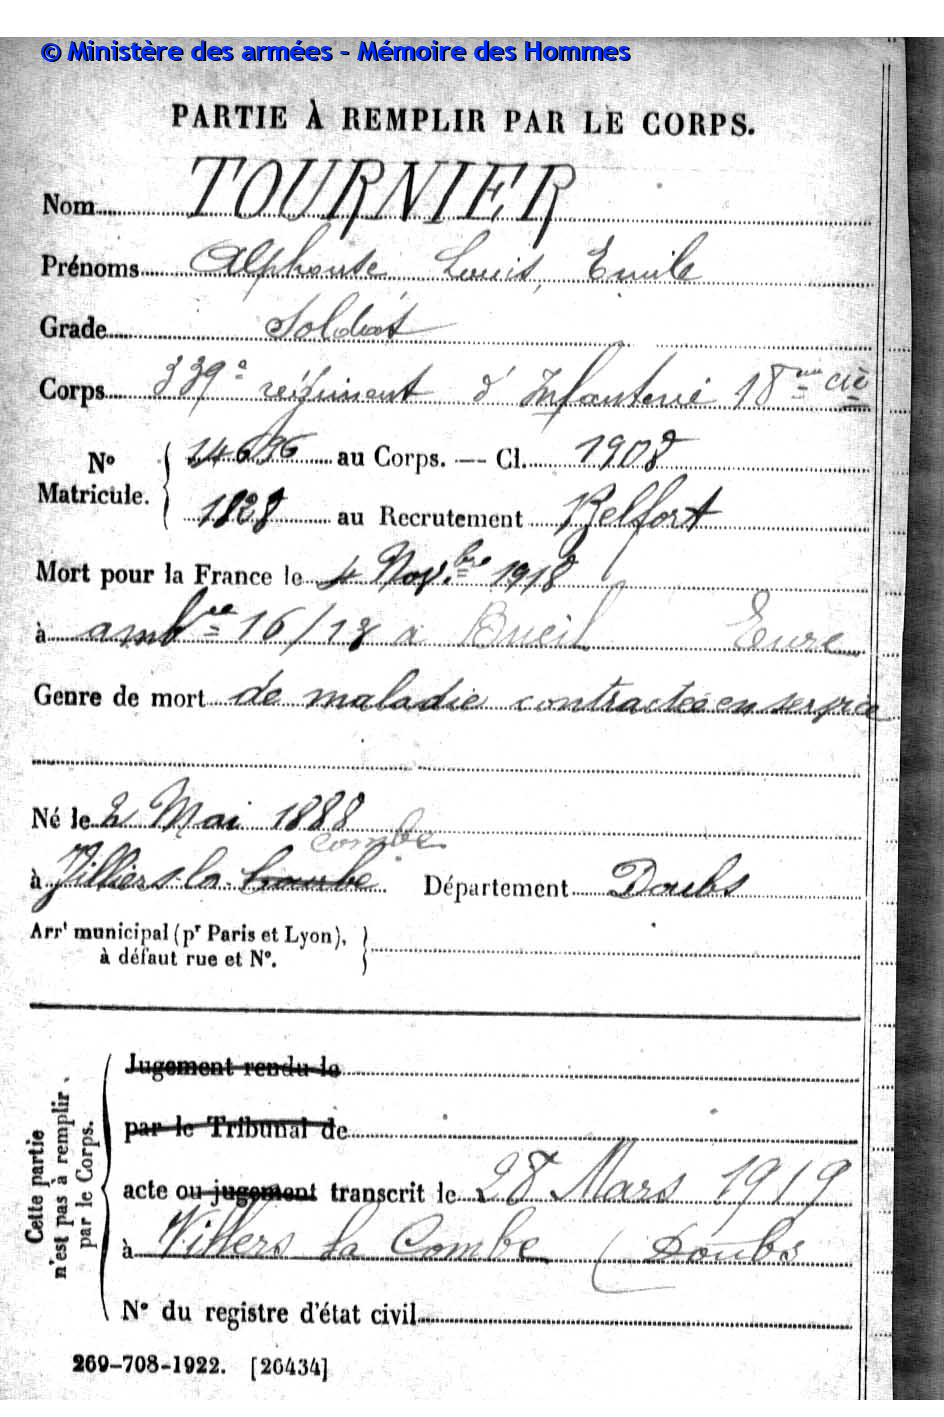 © Ministère des armées - Mémoire des Hommes
PARTIE À REMPLIR PAR LE CORPS.
Nom TOURNIER
Prénoms Alphonse Louis Emile
Grade Soldat
Corps 339e régiment d'Infanterie 18me Cie
No Matricule. 14696 au Corps. — Cl. 1908
1828 au Recrutement Belfort
Mort pour la France le 4 Nov.bre 1918
à ambce 16/18 à Bueil Eure
Genre de mort de maladie contractée en service
Né le 2 Mai 1888
combe
à Villiers la Combe Département Doubs
Arrt municipal (pr Paris et Lyon),
à défaut rue et No.
Cette partie n'est pas à remplir par le Corps.
Jugement rendu le
par le Tribunal de
acte ou jugement transcrit le 28 Mars 1919
à Villers la Combe (Doubs
No du registre d'état civil
269-708-1922. [26434]